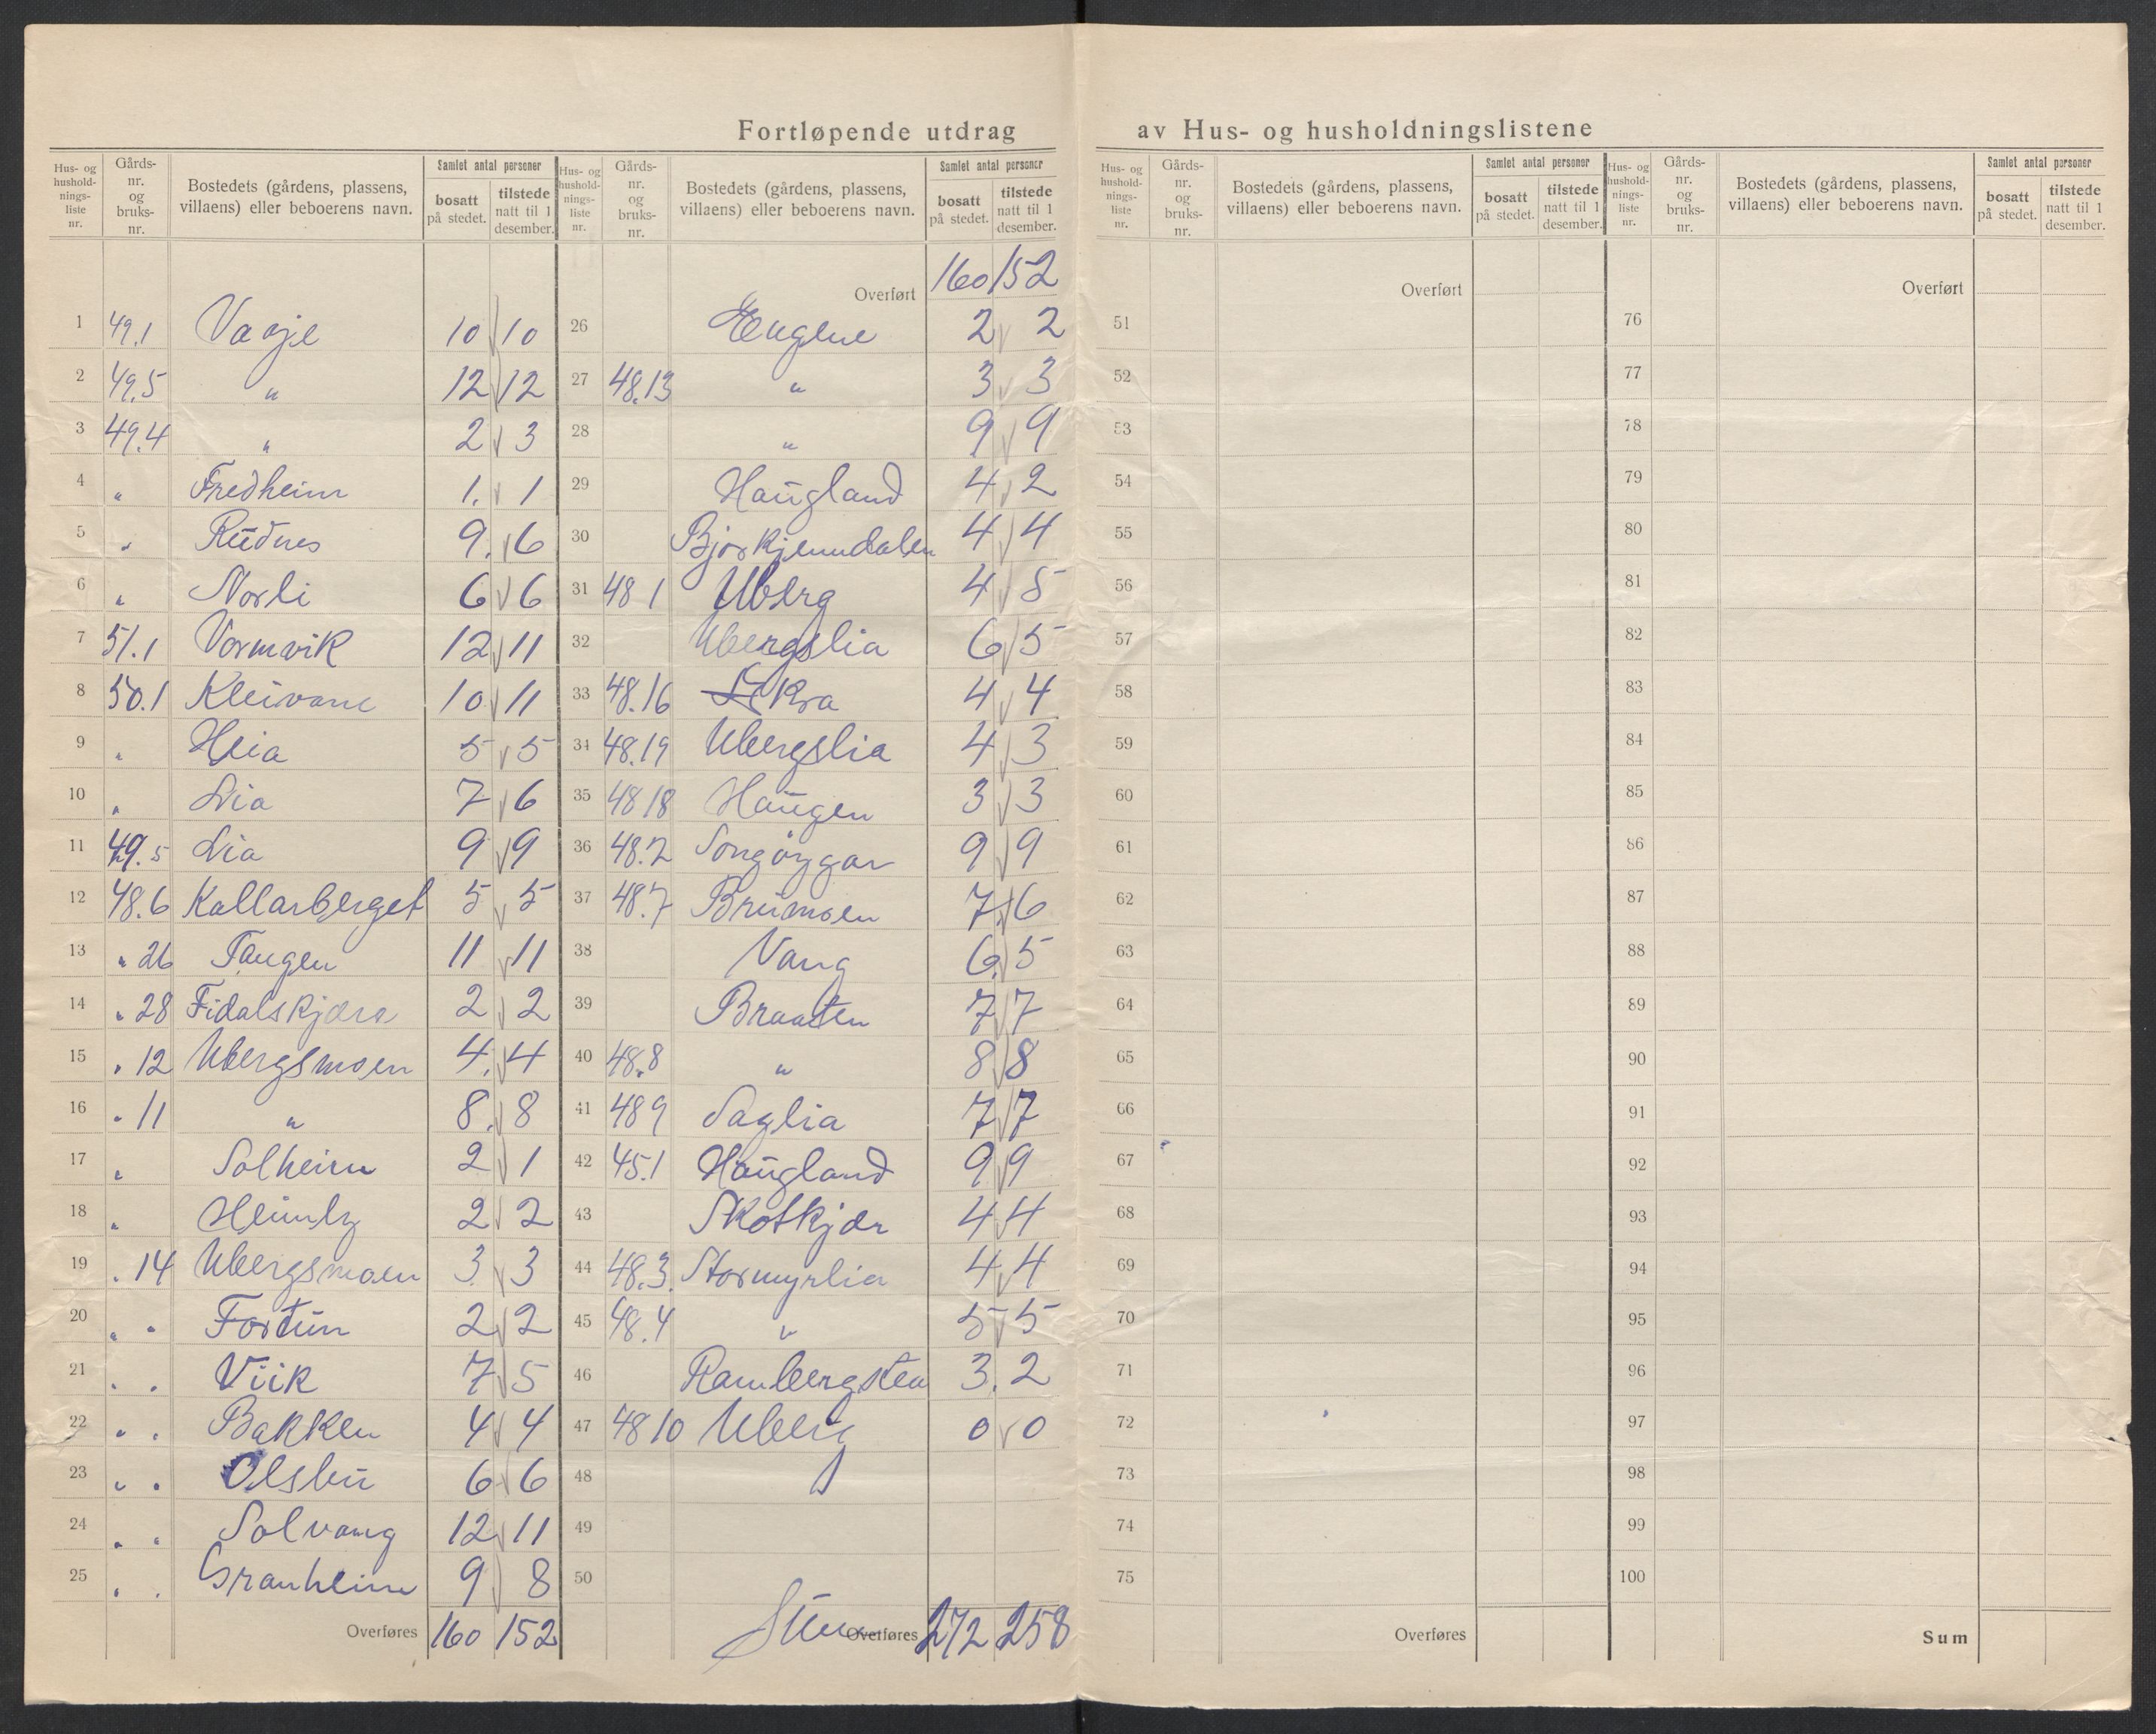 Fortløpende utdrag av Hus- og husholdningslistene
Hus- og hushold- nings- liste nr. | Gårds- nr. og bruks- nr. | Bostedets (gårdens, plassens, villaens) eller beboerens navn. | Samlet antal personer | bosatt på stedet. | tilstede natt til 1 desember.
1 49.1 Vaaje 10 10
2 49.5 " 12 12
3 49.4 " 2 3
4 " Fredheim 1. 1
5 " Rudnes 9. 6
6 " Norli 6 6
7 51.1 Vormvik 12 11
8 50.1 Kleivane 10 11
9 " Heia 5 5
10 " Lia 7 6
11 49.5 Lia 9 9
12 48.6 Kallarberget 5 5
13 " 26 Tangen 11 11
14 " 28 Fidalskjæra 2 2
15 " 12 Ubergsmoen 4. 4
16 " 11 " 8. 8
17 " Solheim 2 1
18 " Heimly 2 2
19 " 14 Ubergsmoen 3 3
20 " " Fortun 2 2
21 " " Viik 7 5
22 " " Bakken 4 4
23 " " Olsbu 6 6
24 " " Solvang 12 11
25 " " Granheim 9 8
Overføres 160 152
Hus- og hushold- nings- liste nr. | Gårds- nr. og bruks- nr. | Bostedets (gårdens, plassens, villaens) eller beboerens navn. | Samlet antal personer | bosatt på stedet. | tilstede natt til 1 desember.
Overført 160 152
26 Englene 2 2
27 48.13 " 3 3
28 " 9 9
29 Haugland 4 2
30 4 4
31 48 1 Uberg 4 5
32 Ubergslia 6 5
33 48.16 Ekra 4 4
34 48.19 Ubergslia 4 3
35 48 18 Haugen 3 3
36 48.2 9 9
37 48.7 Brumoen 7. 6
38 Vang 6. 5
39 Braaten 7 7
40 48.8 " 8 8
41 48 9 Saglia 7 7
42 45.1 Haugland 9 9
43 Skotkjær 4 4
44 48.3. Stormyrlia 4 4
45 48.4 " 5 5
46 3. 2
47 48 10 Uberg 0 0
48
49
50
Sum Overføres 272 258
Hus- og hushold- nings- liste nr. | Gårds- nr. og bruks- nr. | Bostedets (gårdens, plassens, villaens) eller beboerens navn. | Samlet antal personer | bosatt på stedet. | tilstede natt til 1 desember.
Overført
51
52
53
54
55
56
57
58
59
60
61
62
63
64
65
66
67
68
69
70
71
72
73
74
75
Overføres
Hus- og hushold- nings- liste nr. | Gårds- nr. og bruks- nr. | Bostedets (gårdens, plassens, villaens) eller beboerens navn. | Samlet antal personer | bosatt på stedet. | tilstede natt til 1 desember.
Overført
76
77
78
79
80
81
82
83
84
85
86
87
88
89
90
91
92
93
94
95
96
97
98
99
100
Sum